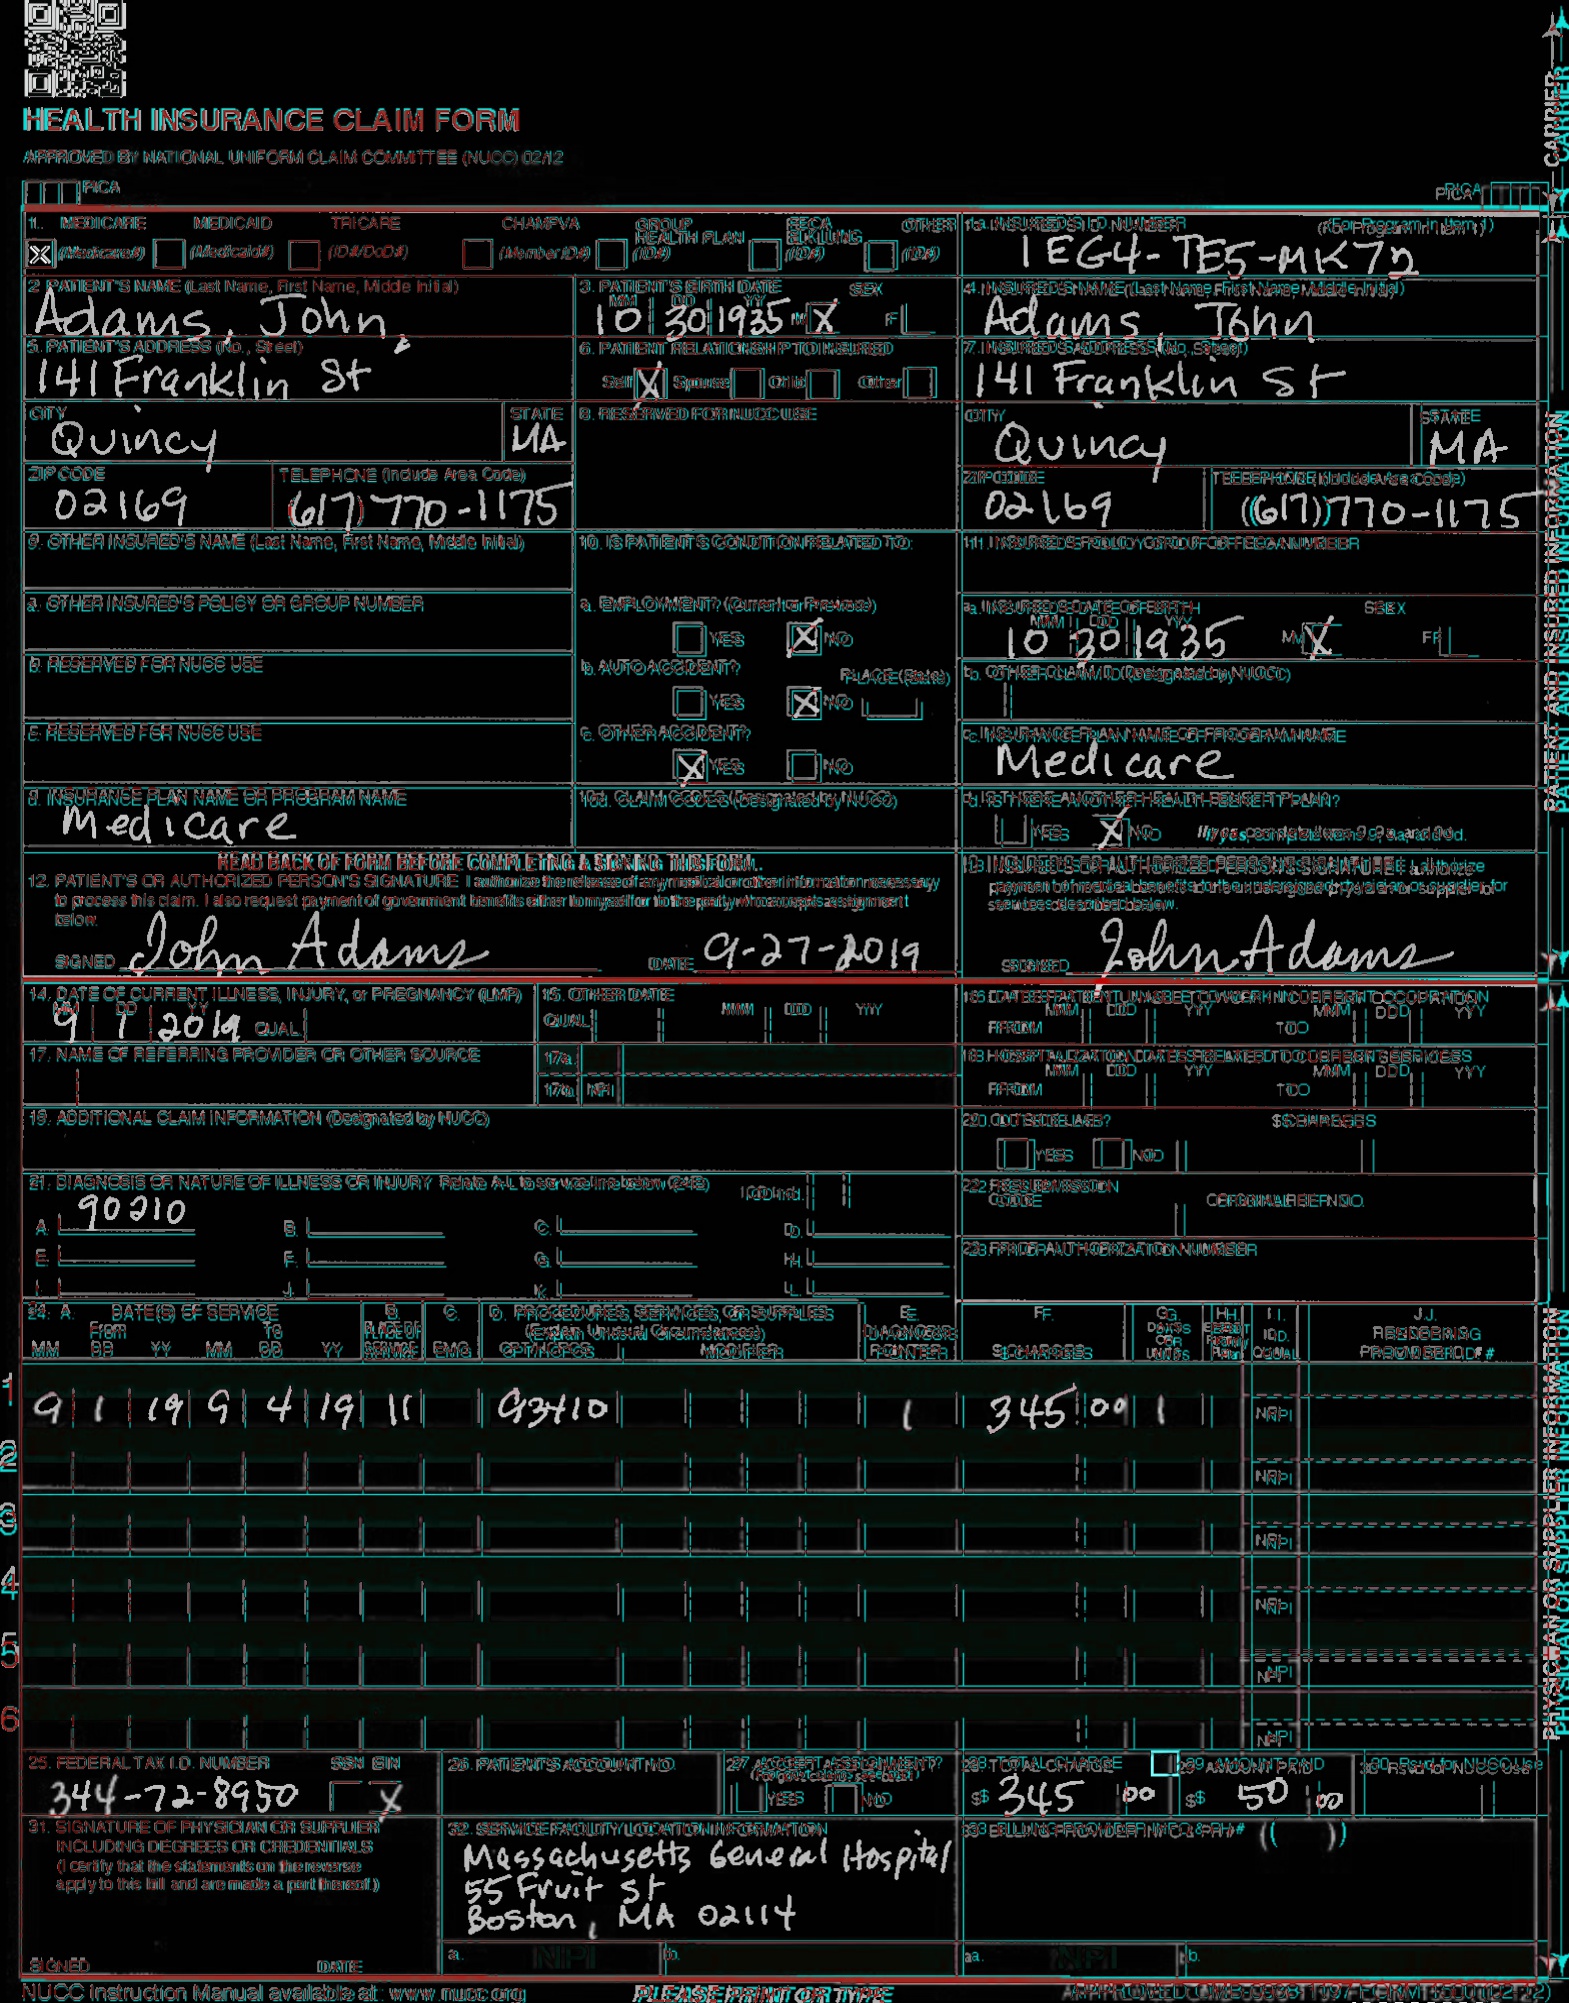 HEALTH INSURANCE CLAIM FORM
APPROVED BY NATIONAL UNIFORM CLAIM COMMITTEE (NUCC) 02/12
PICA
PICA
CARRIER
1. MEDICARE MEDICAID TRICARE CHAMPVA GROUP HEALTH PLAN FECA BLK LUNG OTHER
X (Medicare#) (Medicaid#) (ID#/DoD#) (Member ID#) (ID#) (ID#) (ID#)
1a. INSURED'S I.D. NUMBER (For Program in Item 1)
1EG4-TE5-MK72
2. PATIENT'S NAME (Last Name, First Name, Middle Initial)
Adams, John
3. PATIENT'S BIRTH DATE SEX
MM DD YY
10 30 1935 M X F
4. INSURED'S NAME (Last Name, First Name, Middle Initial)
Adams, John
5. PATIENT'S ADDRESS (No., Street)
141 Franklin St
6. PATIENT RELATIONSHIP TO INSURED
Self X Spouse Child Other
7. INSURED'S ADDRESS (No., Street)
141 Franklin St
CITY STATE
Quincy MA
8. RESERVED FOR NUCC USE
CITY STATE
Quincy MA
ZIP CODE TELEPHONE (Include Area Code)
02169 (617) 770-1175
ZIP CODE TELEPHONE (Include Area Code)
02169 (617) 770-1175
9. OTHER INSURED'S NAME (Last Name, First Name, Middle Initial)
10. IS PATIENT'S CONDITION RELATED TO:
11. INSURED'S POLICY GROUP OR FECA NUMBER
a. OTHER INSURED'S POLICY OR GROUP NUMBER
a. EMPLOYMENT? (Current or Previous)
YES X NO
a. INSURED'S DATE OF BIRTH SEX
MM DD YY
10 30 1935 M X F
b. RESERVED FOR NUCC USE
b. AUTO ACCIDENT? PLACE (State)
YES X NO
b. OTHER CLAIM ID (Designated by NUCC)
c. RESERVED FOR NUCC USE
c. OTHER ACCIDENT?
X YES NO
c. INSURANCE PLAN NAME OR PROGRAM NAME
Medicare
d. INSURANCE PLAN NAME OR PROGRAM NAME
Medicare
10d. CLAIM CODES (Designated by NUCC)
d. IS THERE ANOTHER HEALTH BENEFIT PLAN?
YES X NO If yes, complete items 9, 9a, and 9d.
READ BACK OF FORM BEFORE COMPLETING & SIGNING THIS FORM.
12. PATIENT'S OR AUTHORIZED PERSON'S SIGNATURE I authorize the release of any medical or other information necessary
to process this claim. I also request payment of government benefits either to myself or to the party who accepts assignment
below.
SIGNED John Adams DATE 9-27-2019
13. INSURED'S OR AUTHORIZED PERSON'S SIGNATURE I authorize
payment of medical benefits to the undersigned physician or supplier for
services described below.
SIGNED John Adams
PATIENT AND INSURED INFORMATION
14. DATE OF CURRENT ILLNESS, INJURY, or PREGNANCY (LMP)
MM DD YY
9 1 2019 QUAL.
15. OTHER DATE
QUAL. MM DD YY
16. DATES PATIENT UNABLE TO WORK IN CURRENT OCCUPATION
MM DD YY MM DD YY
FROM TO
17. NAME OF REFERRING PROVIDER OR OTHER SOURCE
17a.
17b. NPI
18. HOSPITALIZATION DATES RELATED TO CURRENT SERVICES
MM DD YY MM DD YY
FROM TO
19. ADDITIONAL CLAIM INFORMATION (Designated by NUCC)
20. OUTSIDE LAB? $ CHARGES
YES NO
21. DIAGNOSIS OR NATURE OF ILLNESS OR INJURY Relate A-L to service line below (24E) ICD Ind.
A. 90210 B. C. D.
E. F. G. H.
I. J. K. L.
22. RESUBMISSION CODE ORIGINAL REF. NO.
23. PRIOR AUTHORIZATION NUMBER
24. A. DATE(S) OF SERVICE B. C. D. PROCEDURES, SERVICES, OR SUPPLIES E. F. G. H. I. J.
From To PLACE OF SERVICE EMG (Explain Unusual Circumstances) DIAGNOSIS POINTER $ CHARGES DAYS OR UNITS EPSDT Family Plan ID. QUAL. RENDERING PROVIDER ID. #
MM DD YY MM DD YY CPT/HCPCS MODIFIER
1 9 1 19 9 4 19 11 93410 1 345 00 1 NPI
2 NPI
3 NPI
4 NPI
5 NPI
6 NPI
PHYSICIAN OR SUPPLIER INFORMATION
25. FEDERAL TAX I.D. NUMBER SSN EIN
344-72-8950 X
26. PATIENT'S ACCOUNT NO.
27. ACCEPT ASSIGNMENT?
(For govt. claims, see back)
YES NO
28. TOTAL CHARGE
$ 345 00
29. AMOUNT PAID
$ 50 00
30. Rsvd for NUCC Use
31. SIGNATURE OF PHYSICIAN OR SUPPLIER
INCLUDING DEGREES OR CREDENTIALS
(I certify that the statements on the reverse
apply to this bill and are made a part thereof.)
SIGNED DATE
32. SERVICE FACILITY LOCATION INFORMATION
Massachusetts General Hospital
55 Fruit St
Boston, MA 02114
a. NPI b.
33. BILLING PROVIDER INFO & PH # ( )
a. NPI b.
NUCC Instruction Manual available at: www.nucc.org
PLEASE PRINT OR TYPE